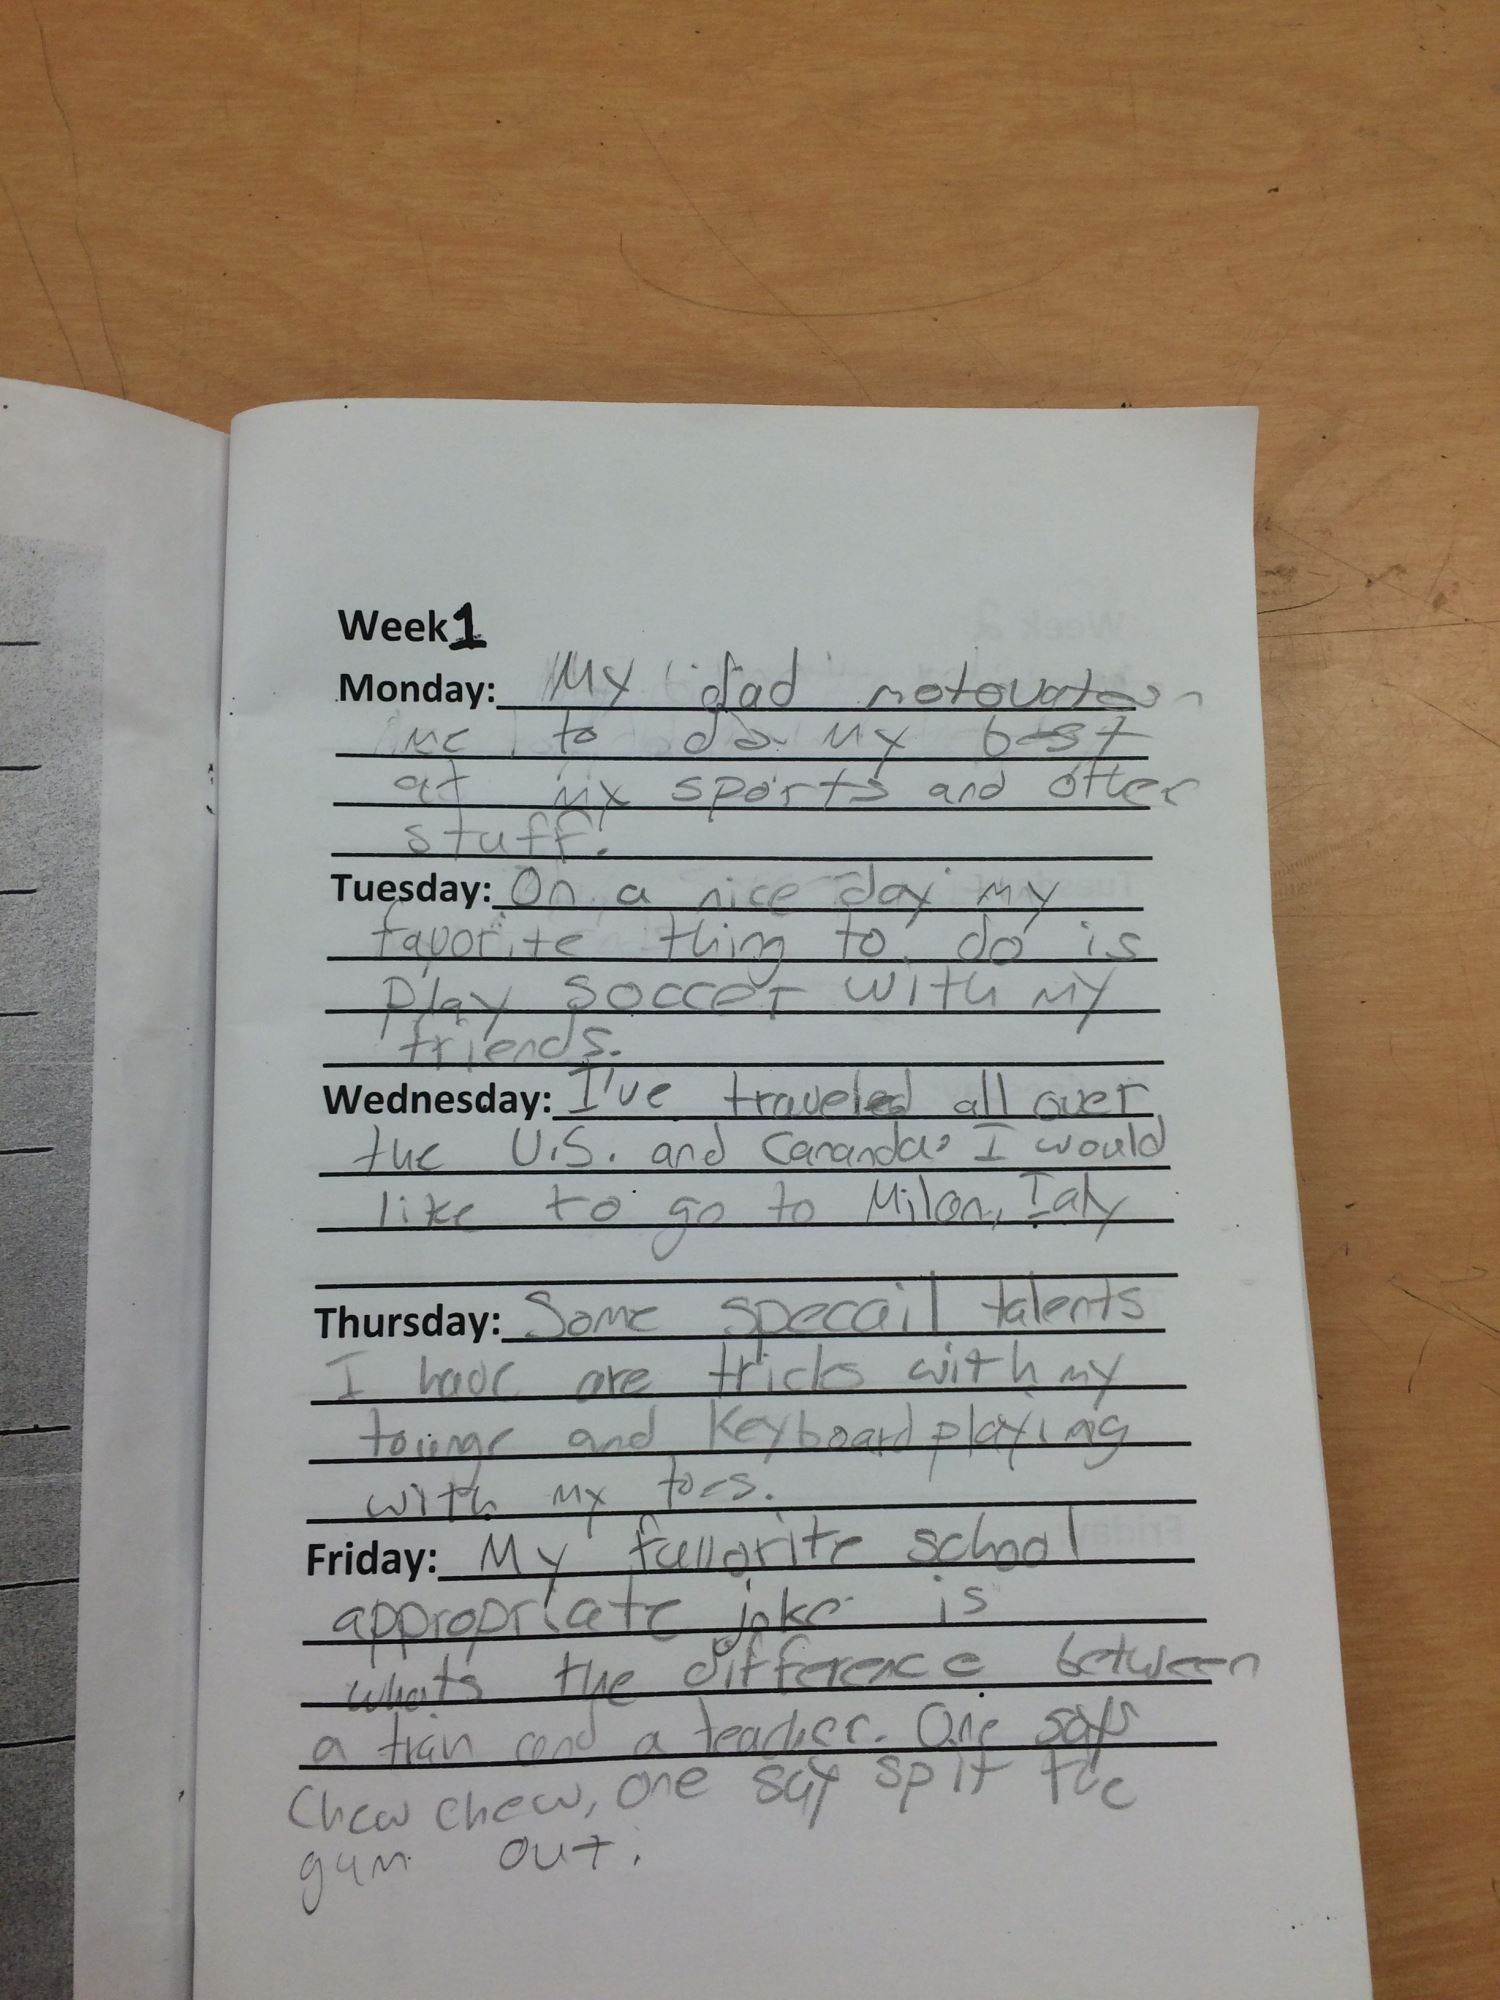 Week 1
Monday: My dad motovates
me to do my best
at my sports and other
stuff.
Tuesday: On a nice day my
favorite thing to do is
play soccer with my
friends.
Wednesday: I've traveled all over
the U.S. and Cananda. I would
like to go to Milon, Italy
Thursday: Some specail talents
I have are tricks with my
tounge and Keyboard playing
with my toes.
Friday: My favorite school
appropriate joke is
whats the difference between
a train and a teacher. One says
Chew chew, one say spit the
gum out.